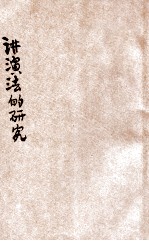 讲演法的研究